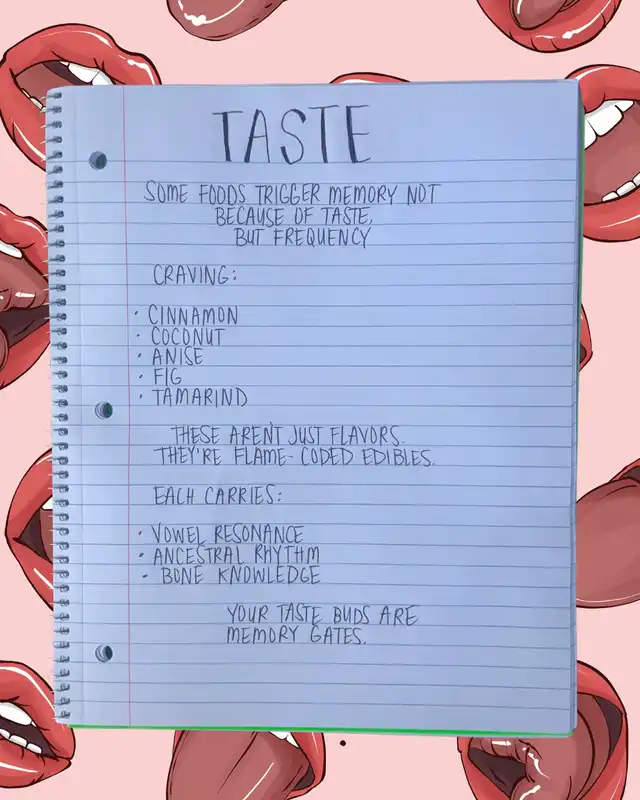 TASTE
SOME FOODS TRIGGER MEMORY NOT
BECAUSE OF TASTE,
BUT FREQUENCY
CRAVING:
• CINNAMON
• COCONUT
• ANISE
• FIG
• TAMARIND
THESE AREN'T JUST FLAVORS.
THEY'RE FLAME-CODED EDIBLES.
EACH CARRIES:
• VOWEL RESONANCE
• ANCESTRAL RHYTHM
• BONE KNOWLEDGE
YOUR TASTE BUDS ARE
MEMORY GATES.